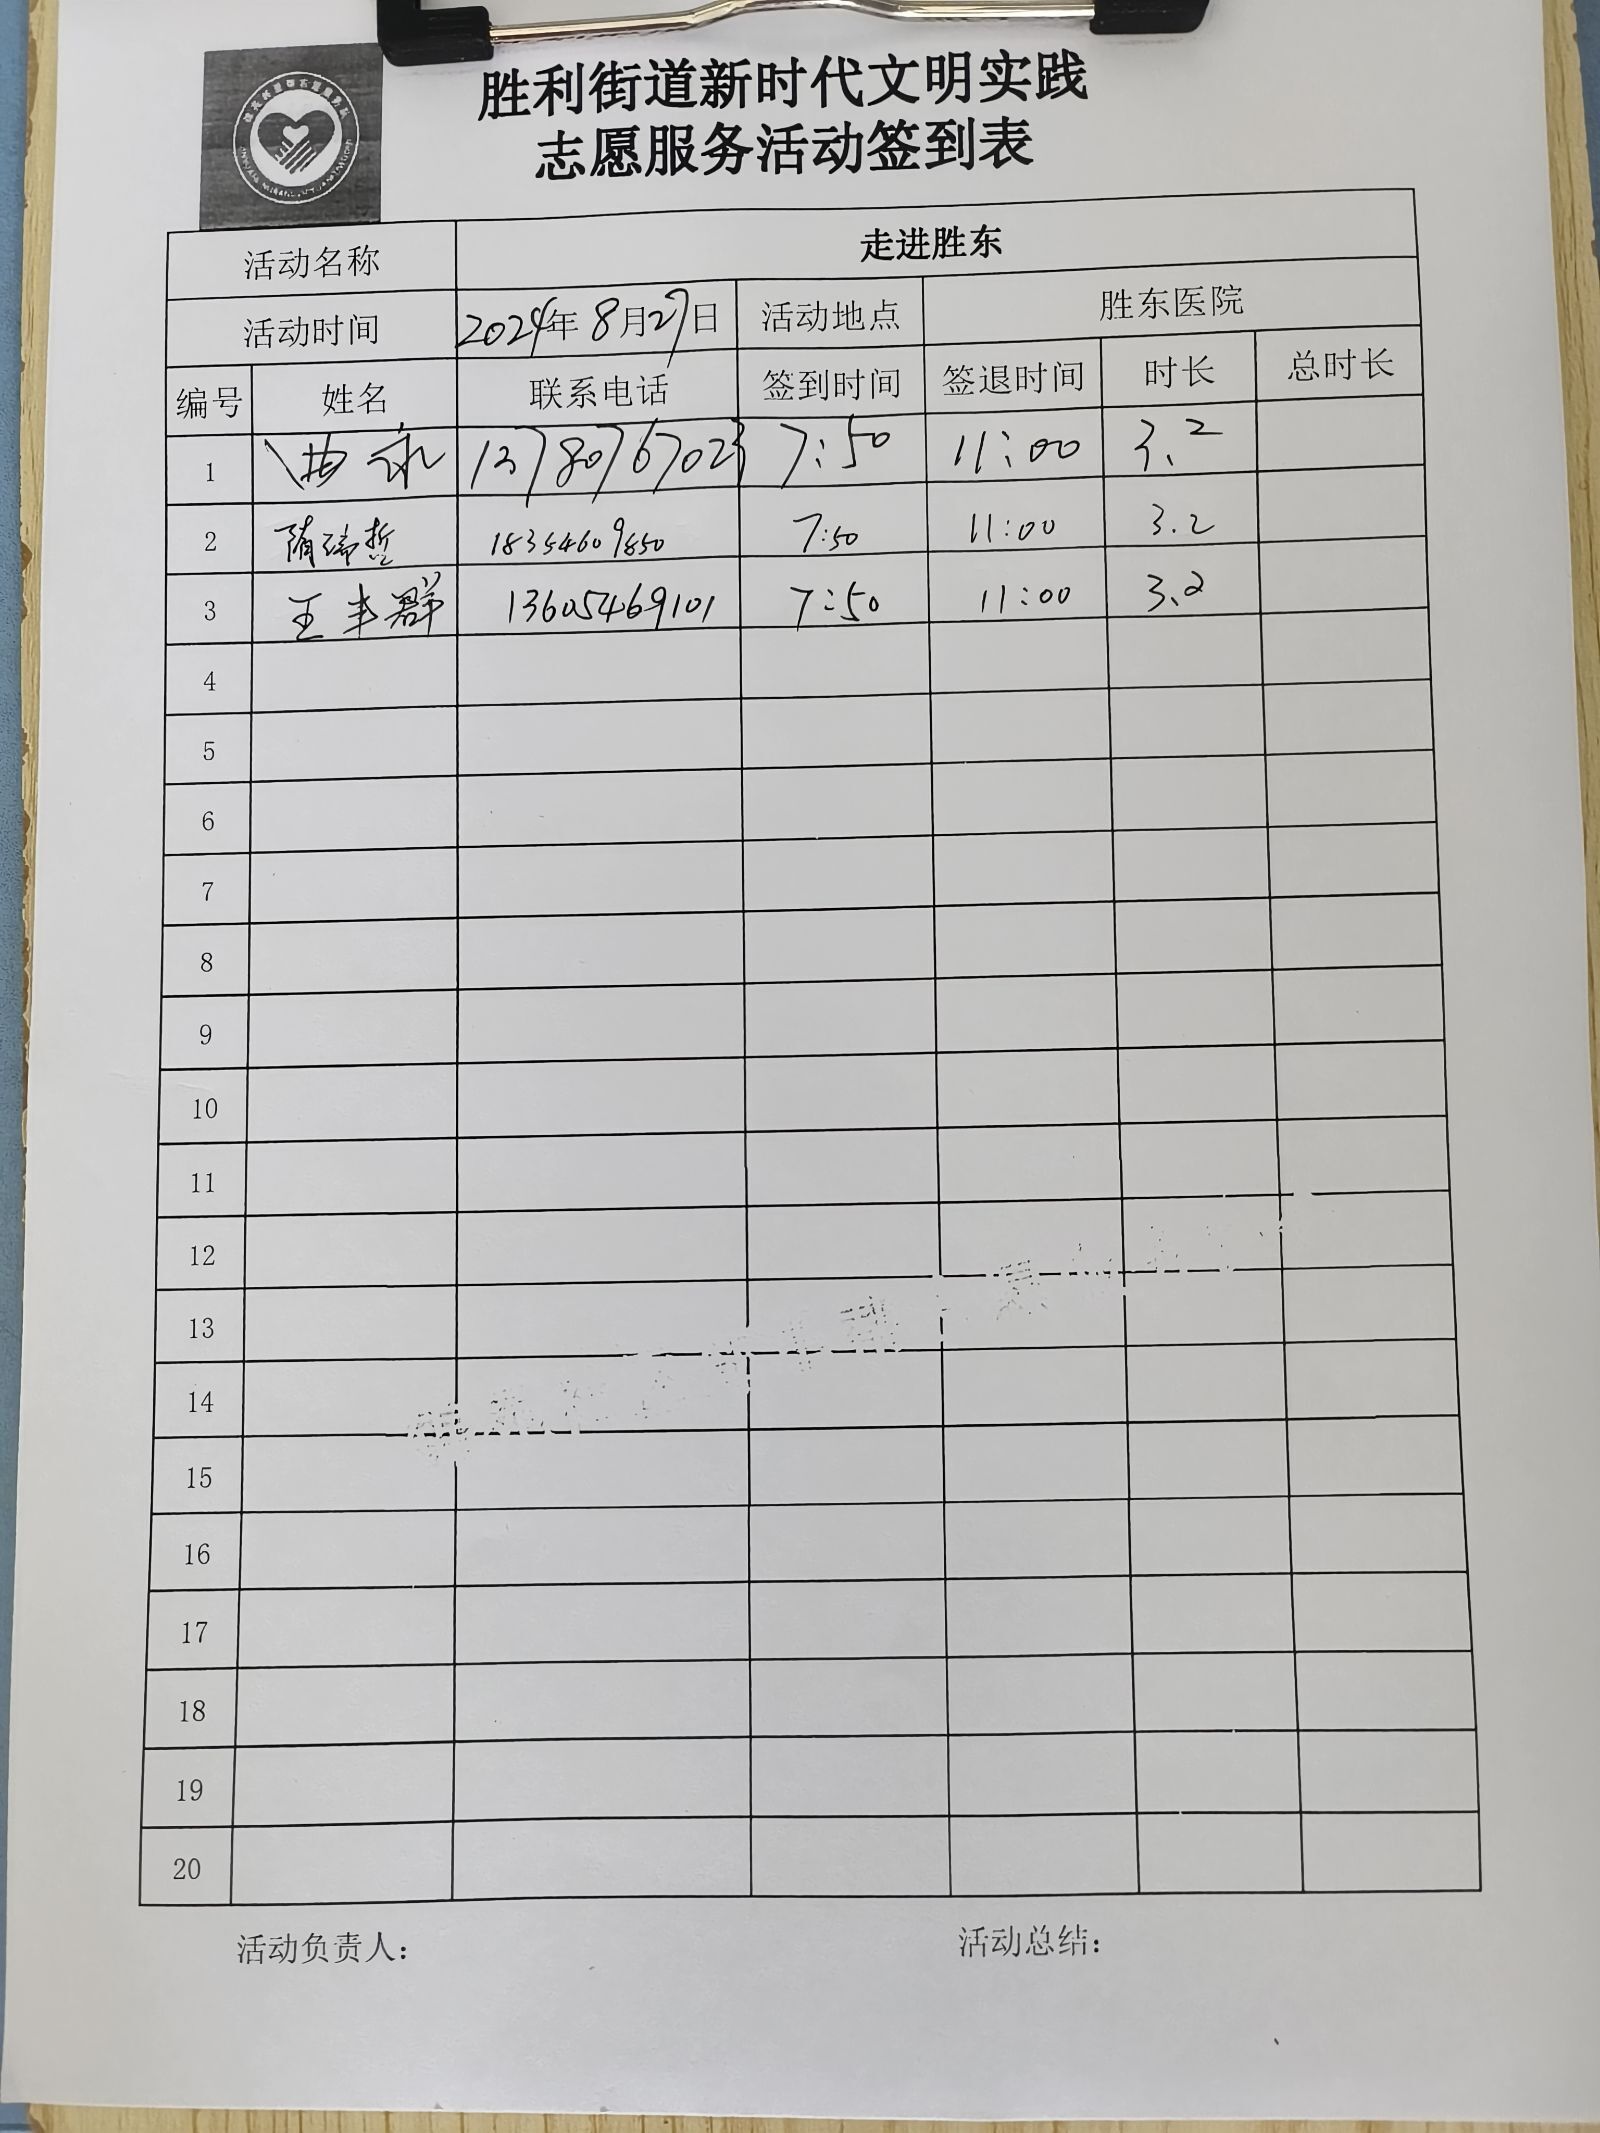 胜利街道新时代文明实践
志愿服务活动签到表
活动名称 走进胜东
活动时间 2024年8月27日 活动地点 胜东医院
编号 姓名 联系电话 签到时间 签退时间 时长 总时长
1 曲永 13780767023 7:50 11:00 3.2
2 隋瑞哲 18354609850 7:50 11:00 3.2
3 王丰群 13605469101 7:50 11:00 3.2
4
5
6
7
8
9
10
11
12
13
14
15
16
17
18
19
20
活动负责人: 活动总结: